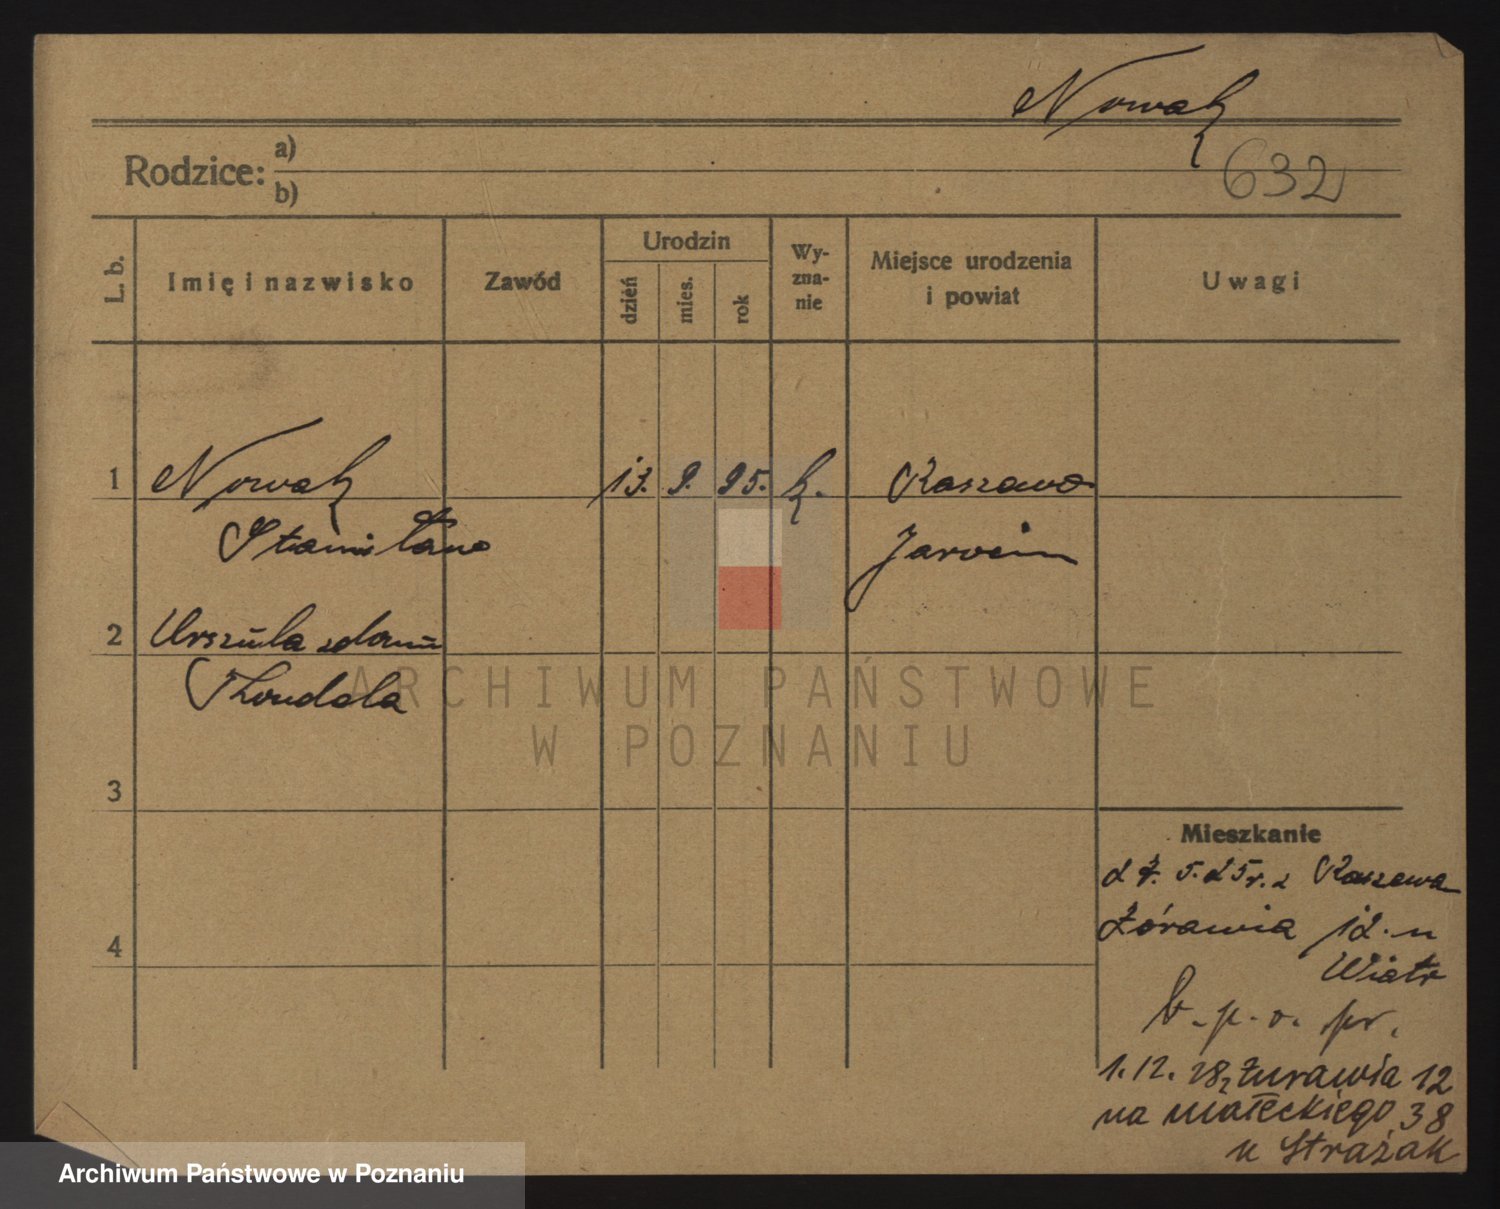 Nowak
Rodzice: a)
b)
632
L. b.
Imię i nazwisko
Zawód
Urodzin
dzień
mies.
rok
Wy-
zna-
nie
Miejsce urodzenia
i powiat
Uwagi
1 Nowak 13. 9. 95. k. Raszewo
Stanisława Jarocin
2 Urszula zdomu
Kondela
3
4
Mieszkanie
5. 25 r. z Raszewa
Żórawia 12. u
Wiatr
b. p. o. pr.
1.12. 28, z Żurawia 12
na Małeckiego 38
u Strażak
ARCHIWUM PAŃSTWOWE
W POZNANIU
Archiwum Państwowe w Poznaniu